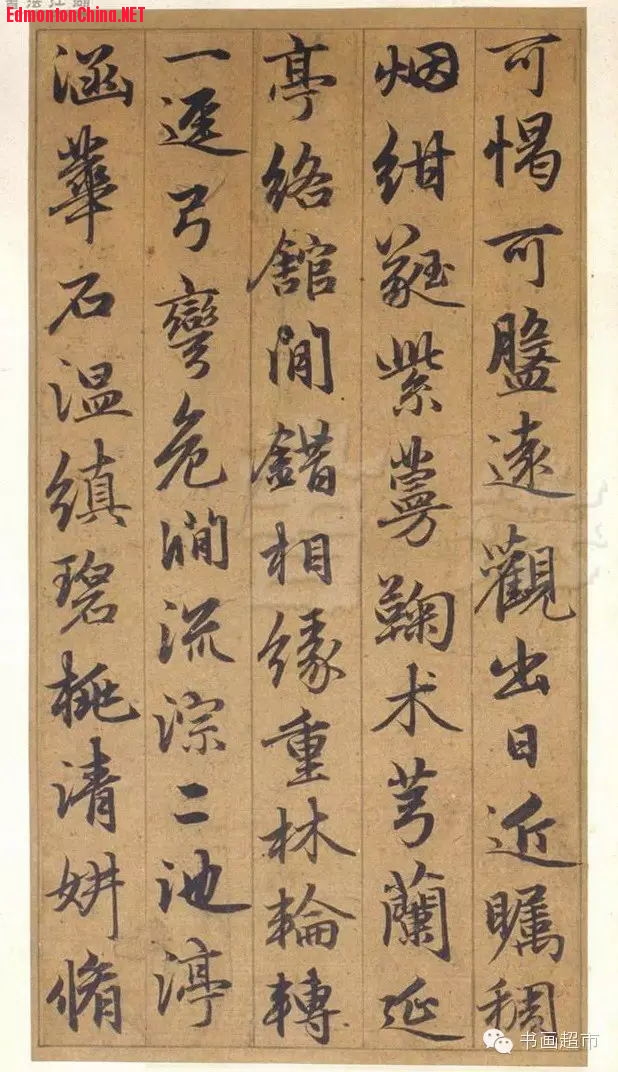 EdmontonChina.NET
可愒可盤遠觀出日近矚稠
烟紺蕤紫萼鞠术芎蘭延
亭絡館間錯相緣重林輪轉
一逕弓彎危澗流淙二池渟
涵華石温縝碧桃清妍脩
书画超市